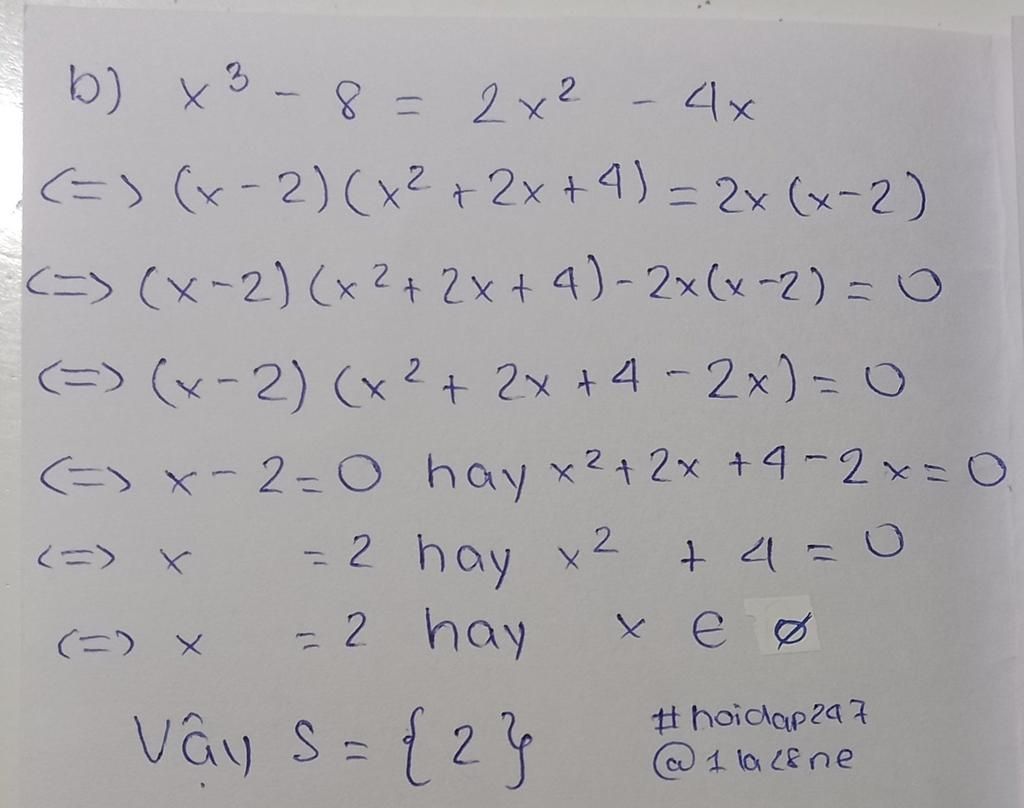 b) x³ - 8 = 2x² - 4x
<=> (x-2)(x² + 2x + 4) = 2x(x-2)
<=> (x-2)(x² + 2x + 4) - 2x(x-2) = 0
<=> (x-2)(x² + 2x + 4 - 2x) = 0
<=> x - 2 = 0 hay x² + 2x + 4 - 2x = 0
<=> x = 2 hay x² + 4 = 0
<=> x = 2 hay x ∈ ∅
Vậy S = {2}
#hoidap247